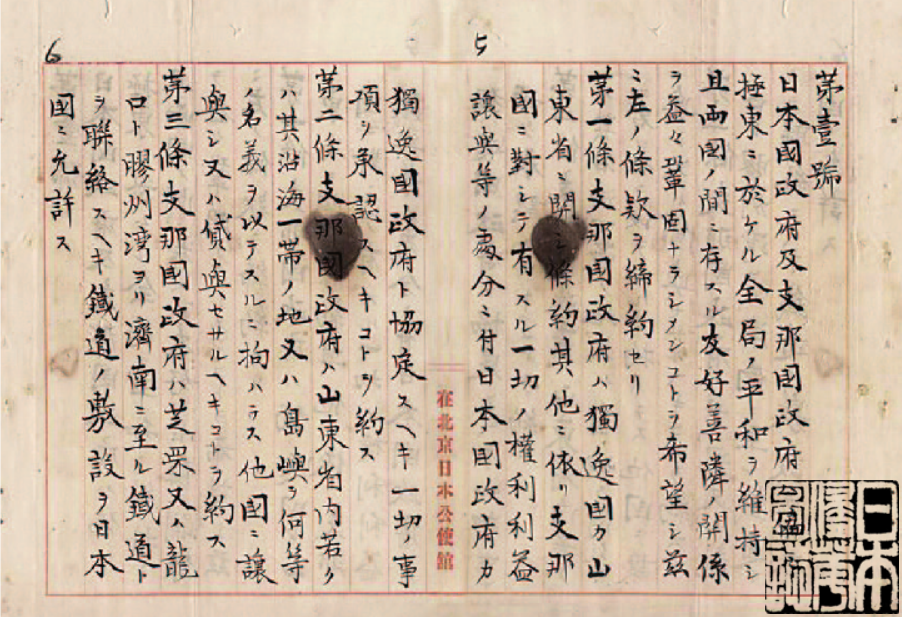 5
第壹號
日本國政府及支那國政府
極東ニ於ケル全局ノ平和ヲ維持シ
且両国ノ間ニ存スル友好善隣ノ関係
ヲ益々鞏固ナラシメンコトヲ希望シ茲
ニ左ノ條款ヲ締約セリ
第一條支那國政府ハ獨逸國カ山
東省ニ関シ條約其他ニ依リ支那
國ニ對シテ有スル一切ノ權利利益
讓與等ノ處分ニ付日本國政府カ
在北京日本公使館
6
獨逸國政府ト協定スヘキ一切ノ事
項ヲ承認スヘキコトヲ約ス
第二條支那國政府ハ山東省内若ク
ハ其沿海一帯ノ地又ハ島嶼ヲ何等
ノ名義ヲ以テスルニ拘ハラス他國ニ讓
與シ又ハ貸與セサルヘキコトヲ約ス
第三條支那國政府ハ芝罘又ハ龍
口ト膠州湾ヨリ濟南ニ至ル鐵道ト
ヲ聯絡スヘキ鐵道ノ敷設ヲ日本
國ニ允許ス
日本